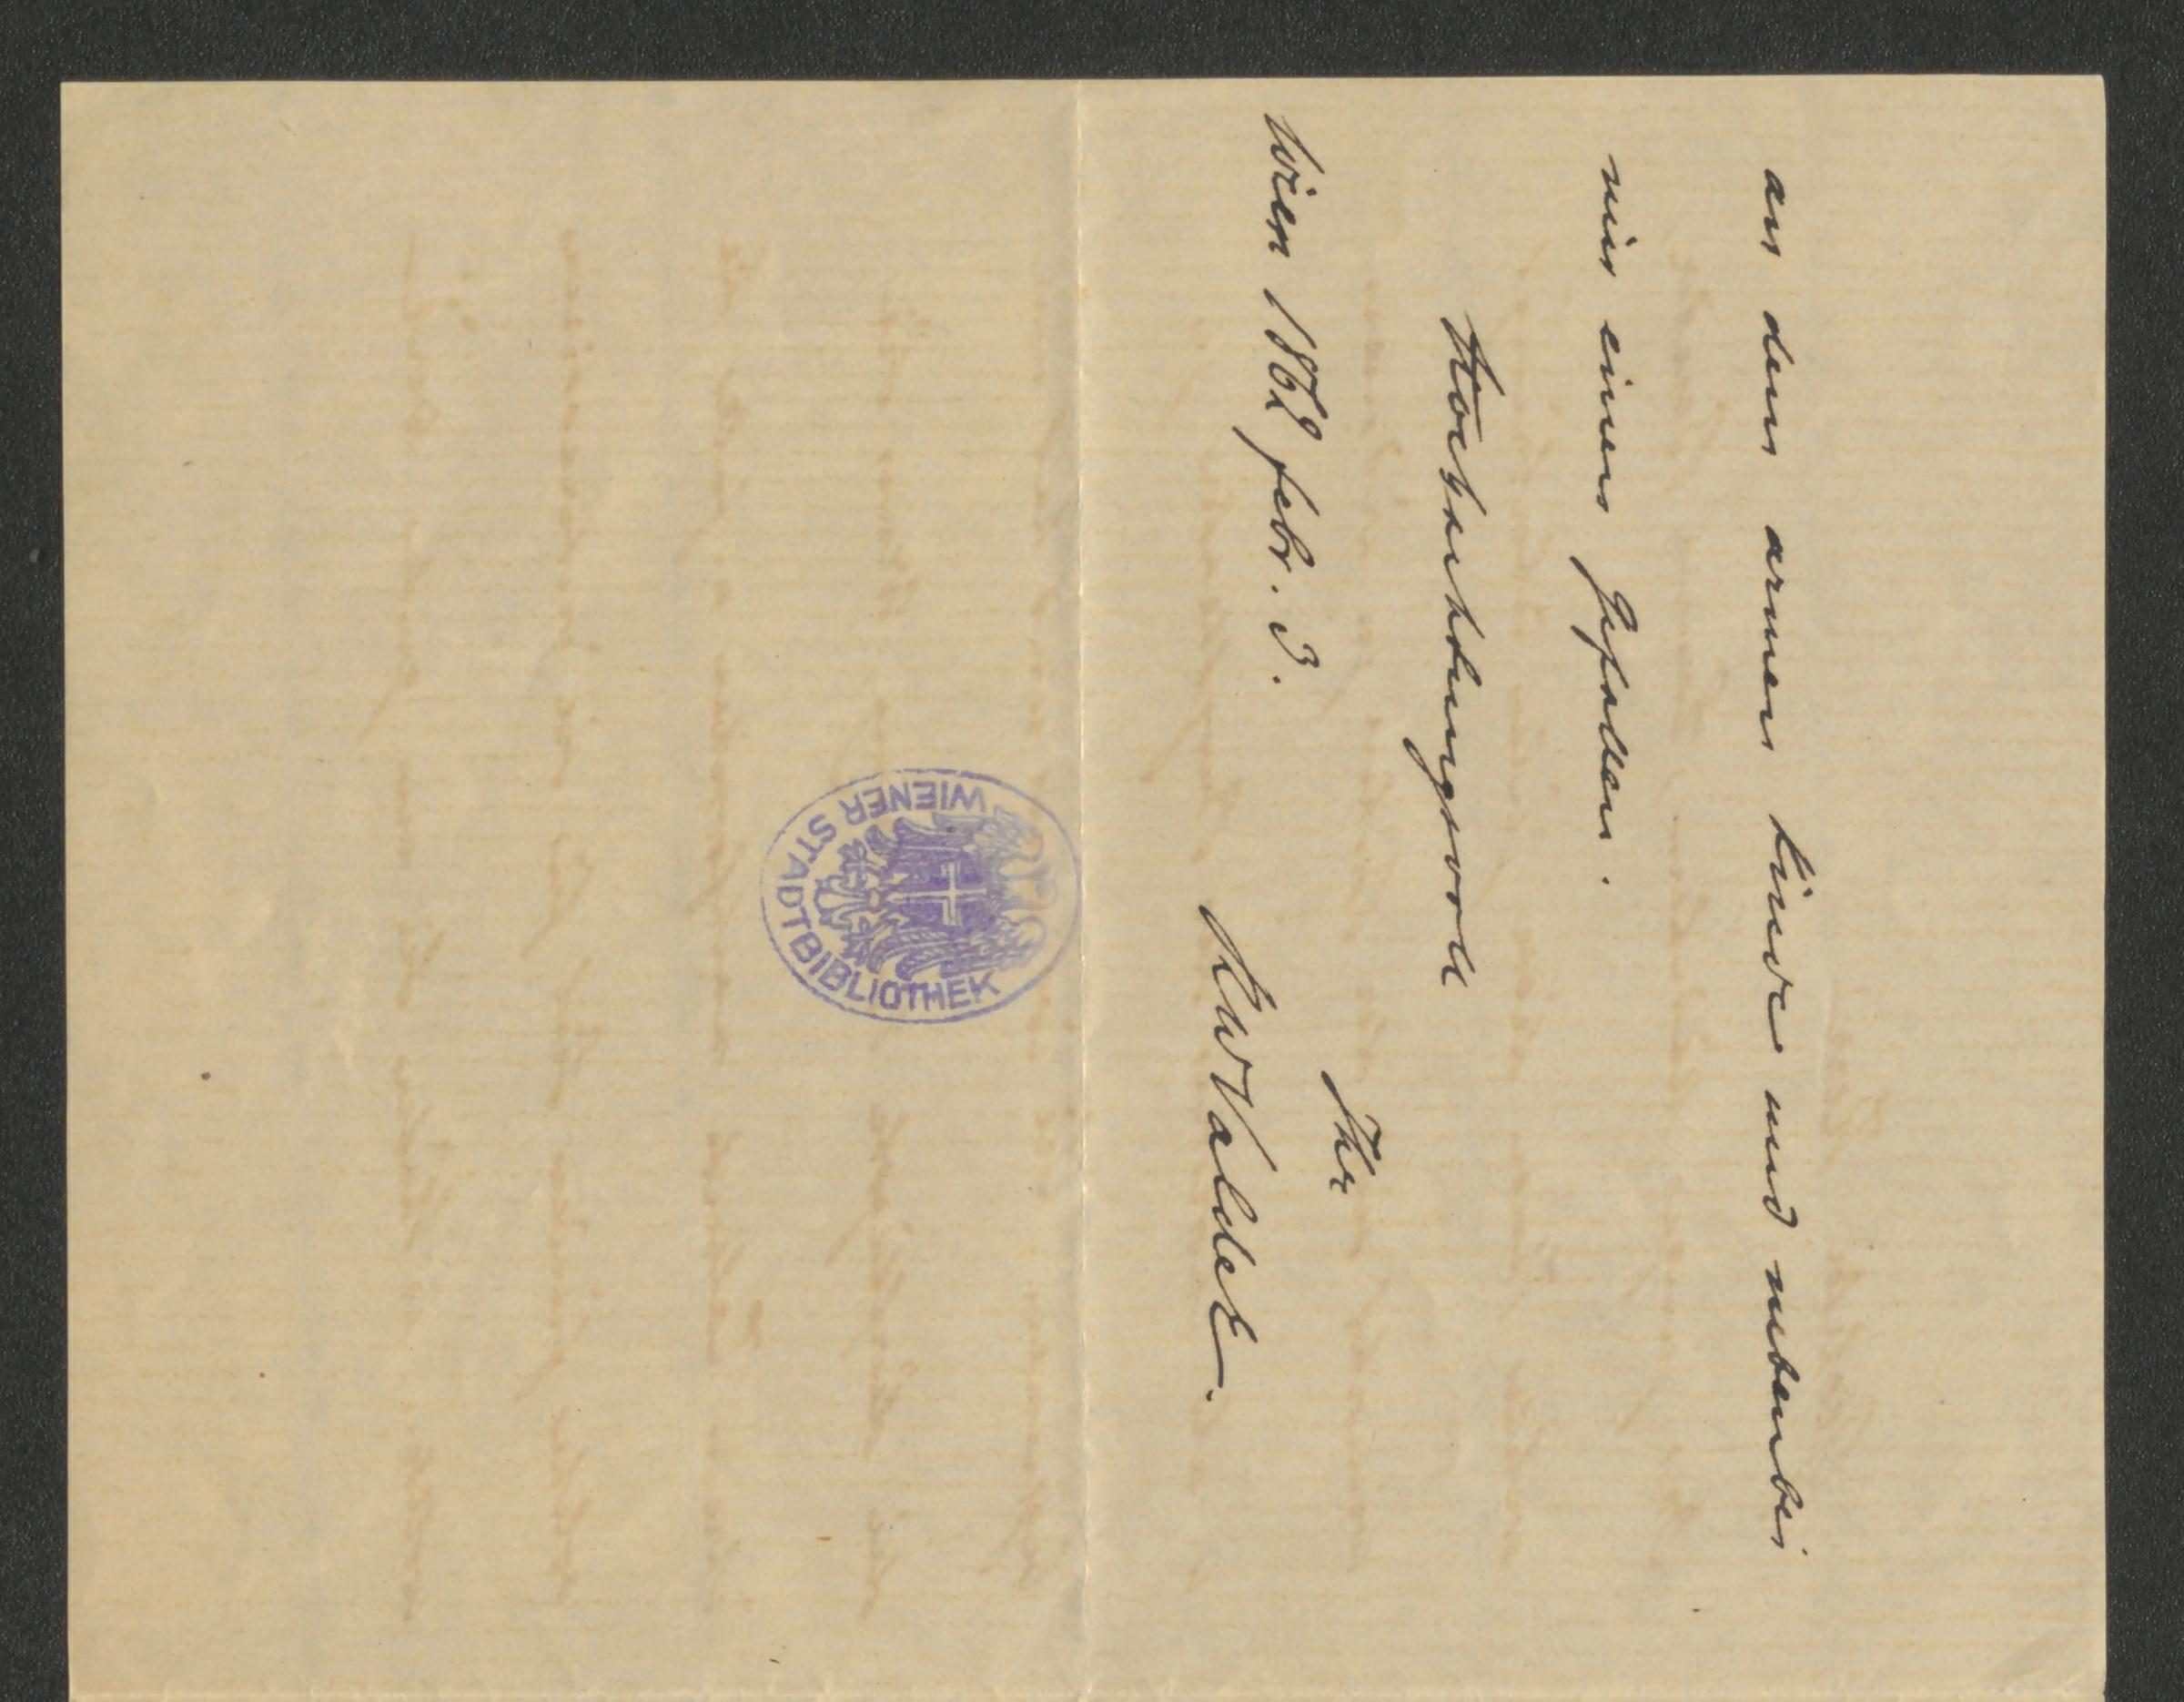 an dem armen Kinde und nebenbei
mir einen Gefallen.
Hochachtungsvoll
Ihr
Wien 1862 febr. 3.
RWaldek.
WIENER STADTBIBLIOTHEK